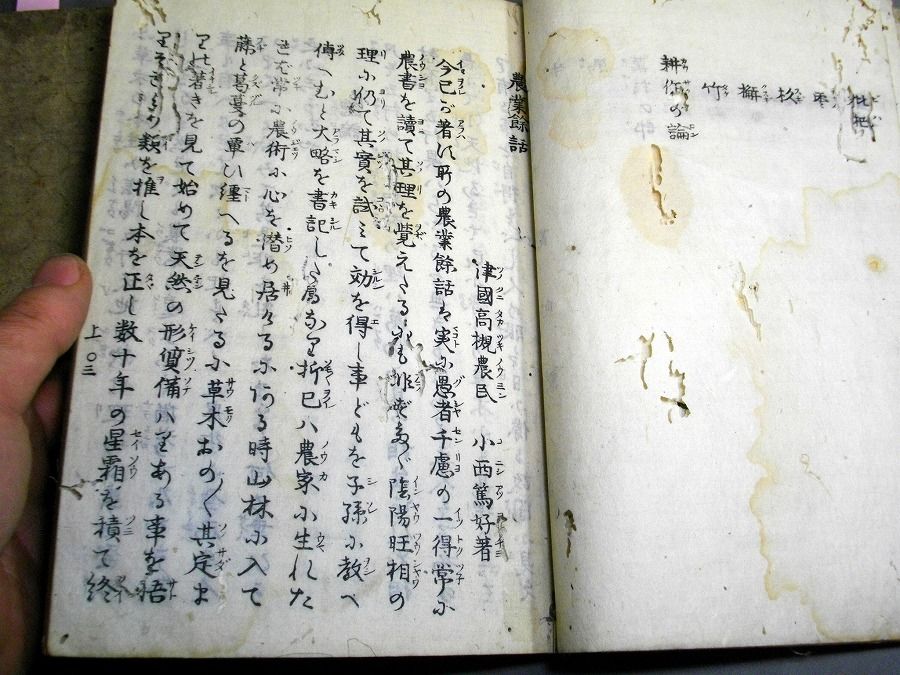 枇杷
棗
杦
橅
竹
耕作の論
農業餘話
津國高槻農民 小西篤好著
今己が著はす所の農業餘話は実に愚者千慮の一得常に
農書を讀て其理を覚えたる 陰陽旺相の
理に仍て其實を試ミて効を得し事どもを子孫に教へ
傳へむと大略を書記したる 抑己ハ農家に生れた
常に農術に心を潜め居けるに 時山林に入て
藤と葛蔓の 纏へるを見たるに草木おの〱其定ま
れる 著きを見て始めて天然の形質備ハりある事を悟
り 類を推し本を正し数十年の星霜を積て終
上〇三